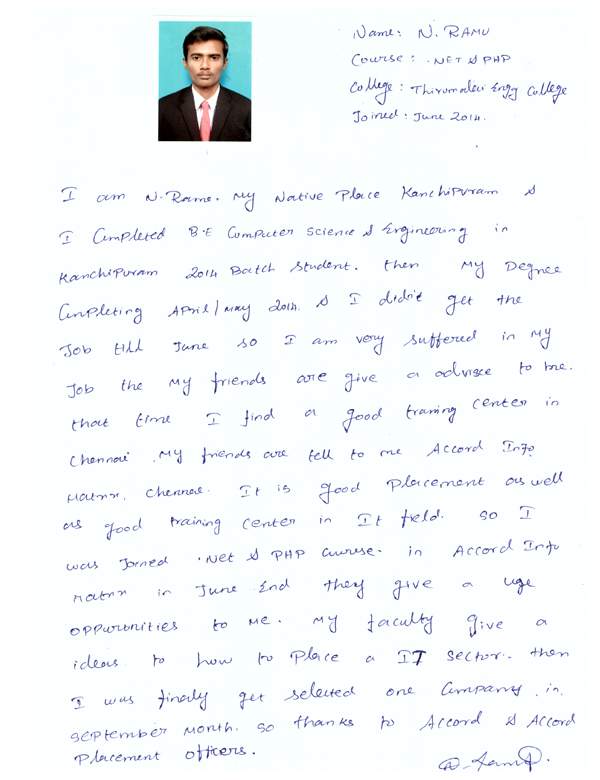 Name: N. RAMU
Course: .NET & PHP
College: Thirumalai Engg College
Joined: June 2014.
I am N. Ramu. My Native Place Kanchipuram &
I Completed B.E Computer Science & Engineering in
Kanchipuram 2014 Batch Student. then My Degree
Completing April/May 2014. & I didn't get the
Job till June so I am very suffered in My
Job the My friends are give a advisce to me.
that time I find a good training center in
Chennai. My friends are tell to me Accord Info
Matrix, Chennai. It is good Placement as well
as good training center in It field. so I
was Joined .Net & PHP Course. in Accord Info
Matrix in June End they give a uge
oppurunities to me. My faculty give a
ideas to how to place a IT sector. then
I was finaly get selected one Company in
September Month. so thanks to Accord & Accord
Placement officers.